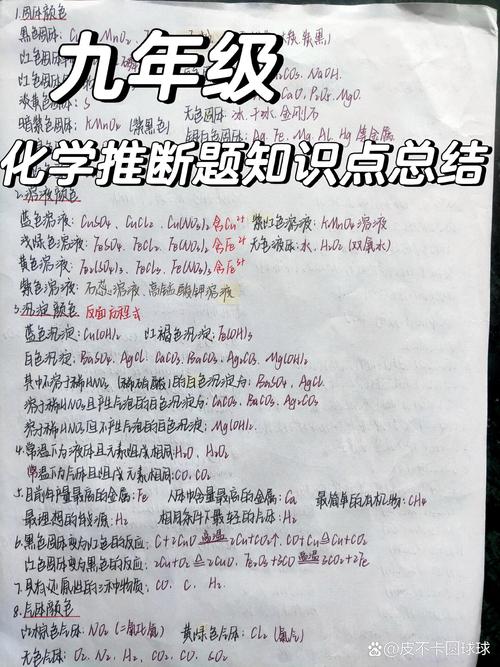 1.固体颜色
九年级
黑色固体:
淡黄色固体: S
无色固体: 冰、干冰、金刚石
暗紫色固体: KMnO₄ (紫黑色) 银白色固体: Ag、Fe、Mg、Al、Hg等金属.
化学推断题知识点总结
2.溶液颜色
蓝色溶液: CuSO₄、CuCl₂、Cu(NO₃)₂ 含Cu²⁺ 紫红色溶液: KMnO₄溶液
浅绿色溶液: FeSO₄、FeCl₂、Fe(NO₃)₂ 含Fe²⁺ 无色液体: 水、H₂O₂ (双氧水)
黄色溶液: Fe₂(SO₄)₃、FeCl₃、Fe(NO₃)₃ 含Fe³⁺
紫色溶液: 石蕊溶液、高锰酸钾溶液
3.沉淀颜色 反面方程式
蓝色沉淀: Cu(OH)₂ 红褐色沉淀: Fe(OH)₃
白色沉淀: BaSO₄、AgCl、CaCO₃、BaCO₃、Ag₂CO₃、Mg(OH)₂
其中不溶于稀HNO₃ (稀硝酸)的白色沉淀为: BaSO₄、AgCl
溶于稀HNO₃且产生气泡的白色沉淀为: CaCO₃、BaCO₃、Ag₂CO₃
溶于稀HNO₃但不产生气泡的白色沉淀: Mg(OH)₂
4.常温下为液体且元素组成相同: H₂O、H₂O₂
常温下为气体且组成元素相同: CO、CO₂
5.目前年产量最高的金属: Fe 人体中含量最高的金属: Ca 最简单的有机物: CH₄
最理想的能源: H₂ 相同条件下最轻的气体: H₂
6.黑色固体变为红色的反应: C+2CuO 高温 2Cu+CO₂↑、CO+CuO △ Cu+CO₂
红色固体变为黑色的反应: 2Cu+O₂ △ 2CuO、Fe₂O₃+3CO 高温 3CO₂+2Fe
7.具有还原性的三种物质: CO、C、H₂
8.气体颜色
红棕色气体: NO₂ (二氧化氮) 黄绿色气体: Cl₂ (氯气)
无色气体: O₂、N₂、H₂、CO₂、CO、SO₂
@皮不卡圆球球